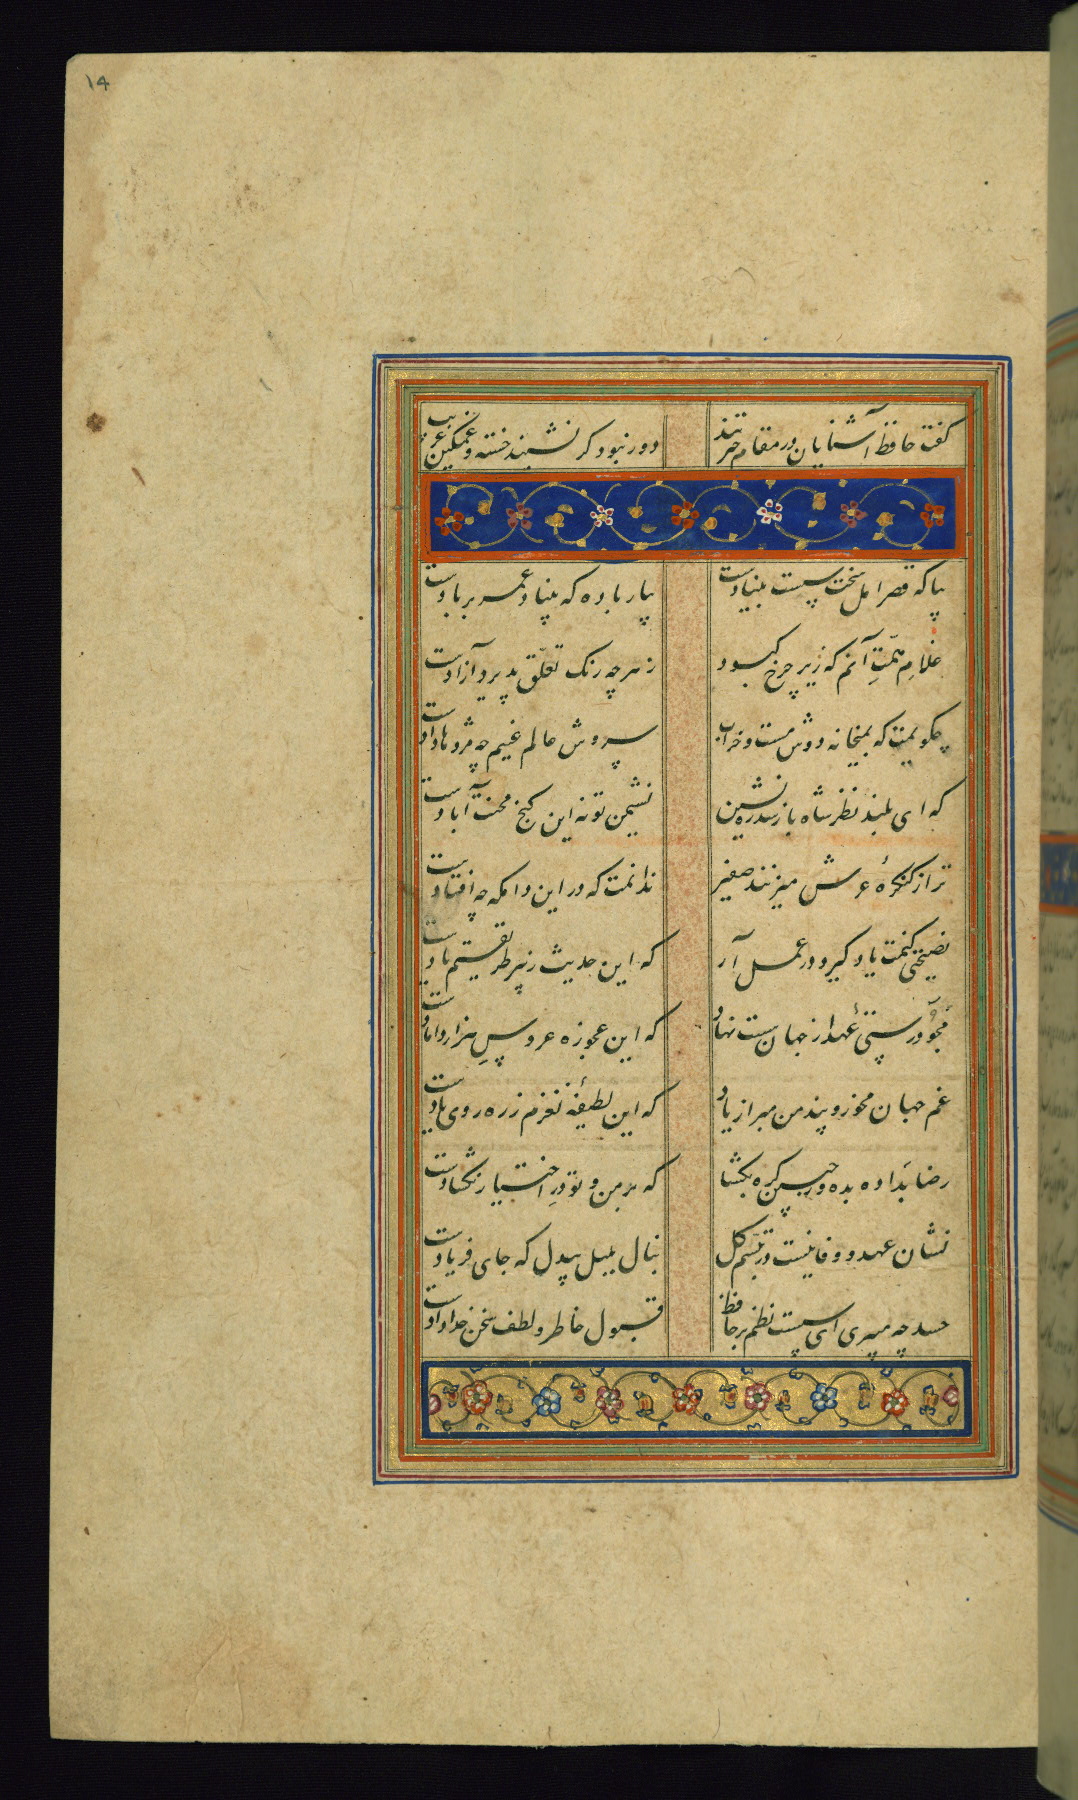 ۱۴
گفت حافظ آشنایان در مقام حیرتند دور نبود گر نشیند خسته و غمگین غریب
بیا که قصر امل سخت سست بنیادست بیار باده که بنیاد عمر بر بادست
غلام همّتِ آنم که زیر چرخ کبود ز هر چه رنک تعلّق پذیرد آزادست
چکویمت که بمیخانه دوش مست و خراب سروش عالم غیبم چه مژدها دادست
که ای بلند نظر شاه باز سدره نشین نشیمن تو نه این کنج محنت آبادست
ترا ز کنکرهٔ عرش میزنند صفیر ندانمت که در این دامکه چه افتادست
نصیحتی کنمت یاد کیر و در عمل آر که این حدیث ز پیر طریقتم یادست
مجو درستی عهد از جهان سست نهاد که این عجوزه عروسِ هزار دامادست
غم جهان مخور و پند من مبر از یاد که این لطیفهٔ نغزم ز ره روی یادست
رضا بداده بده وز جبین کره بکشا که بر من و تو درِ اختیار نکشادست
نشان عهد و وفا نیست در تبسّم کل بنال بلبل بیدل که جای فریادست
حسد چه میبری ای سست نظم بر حافظ قبول خاطر و لطف سخن خدادادست